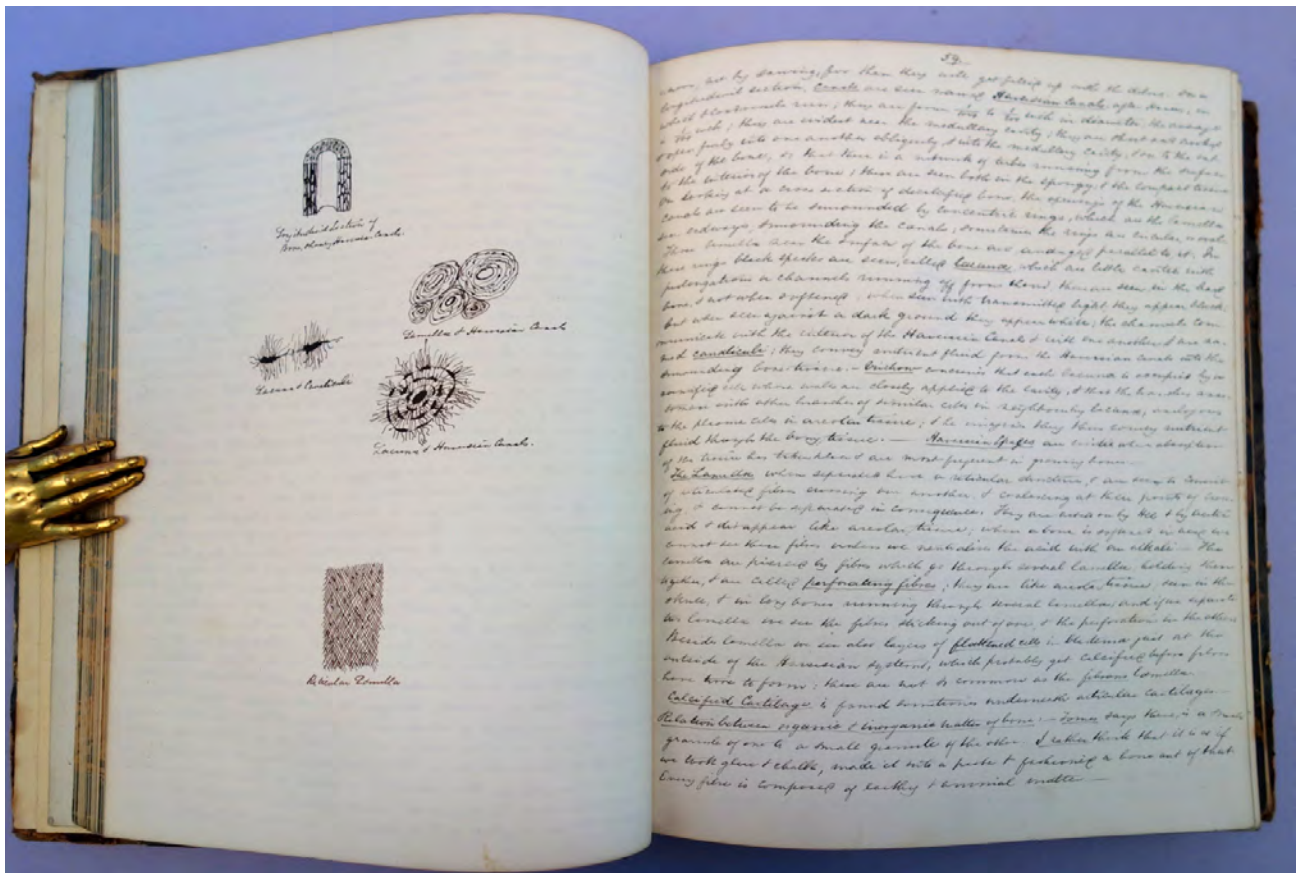 Longitudinal Section of
Bone, showg Haversian Canals.
Lamella & Haversian Canals
Lacuna & Canaliculi
Lacuna & Haversian Canals.
Reticular Lamella
59.
not by sawing, for then they will get filled up with the debris. In a
longitudinal section, Canals are seen named Haversian Canals, after Havers, in
which bloodvessels run; they are from to inch in diameter, the average
inch; these are evident near the medullary cavity; they are short and
& open freely into one another obliquely, & into the medullary cavity, & on to the out-
side of the bone, so that there is a network of tubes running from the surface
to the interior of the bone; these are seen both in the spongy, & the compact tissue
On looking at a cross section of decalcified bone, the openings of the Haversian
Canals are seen to be surrounded by concentric rings, which are the Lamella
seen endways, surrounding the canals; sometimes the rings are circular, or oval.
Those lamella near the surface of the bone are arranged parallel to it. In
these rings black specks are seen, called Lacunae, which are little cavities with
prolongations or channels running off from them; these are seen in the hard
bone, & not when softened; when seen with transmitted light they appear black,
but when seen against a dark ground they appear white; the channels com-
municate with the interior of the Haversian Canals & with one another & are na-
med canaliculi; they convey nutrient fluid from the Haversian canals into the
surrounding bone tissue. - Virchow conceives that each lacuna is occupied by a
ramified cell whose walls are closely applied to the cavity, & that the branches anas-
tomose with other branches of similar cells in neighbouring lacuna, analogous
to the plasma cells in areolar tissue; & he imagines they thus convey nutrient
fluid through the bony tissue. — Haversian Spaces are
of the tissue has taken place & are most frequent in growing bone.
The Lamella when separated have a reticular structure, & are seen to consist
of reticulated fibres crossing one another, & coalescing at their points of cross-
ing, & cannot be separated in consequence. They are
acid & disappear like areolar tissue; when a bone is in we
cannot see these fibres unless we neutralise the acid with an alkali - The
lamella are pierced by fibres which go through several lamella, holding them
together, & are called perforating fibres; they are like areolar tissue, seen in the
skull, & in long bones running through several lamella, and if we separate
lamella we see the fibres sticking out of one, & the perforations in the others
Beside lamella we see also layers of flattened cells in just at the
outside of the Haversian systems, which probably get calcified before fibres
have time to form; these are not so common as the fibrous lamella.
Calcified Cartilage is found sometimes underneath articular cartilages
Relation between organic & inorganic matter of bone: - Tomes says there is a small
granule of one to a small granule of the other. I rather think that it is as if
we took glue & chalk, made it into a paste & fashioned a bone out of that.
Every fibre is composed of earthy & animal matter —